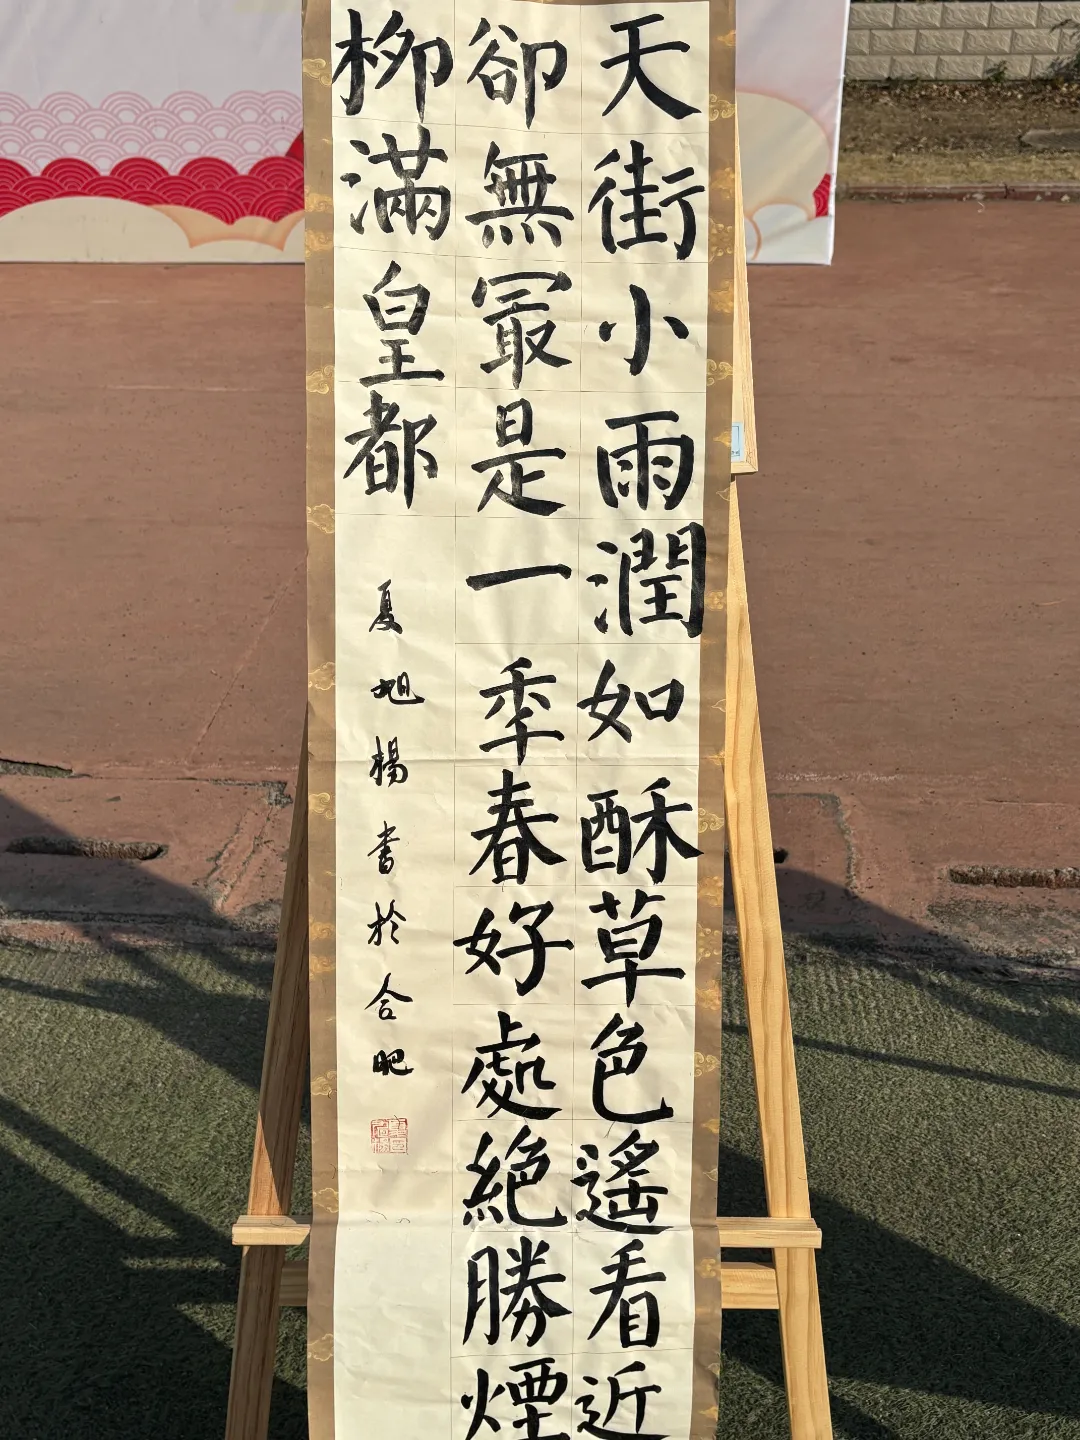 天街小雨潤如酥草色遙看近
卻無冣是一季春好處絕勝煙
柳滿皇都
夏旭楊書於合肥